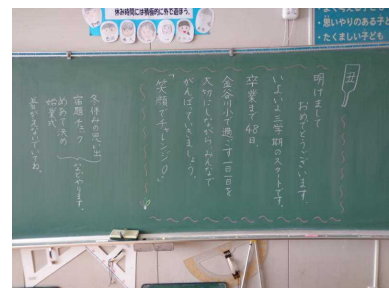 休み時間には積極的に外で遊ぼう。
・思いやりのある子ど
・たくましい子ども
丑
明けまして
おめでとうございます。
いよいよ三学期のスタートです。
卒業まで48日。
金谷川小で過ごす一日一日を
大切にしながらみんなで
がんばっていきましょう。
「笑顔でチャレンジ!」
冬休みの思い出
宿題チェック
めあて決め
始業式
などやります。